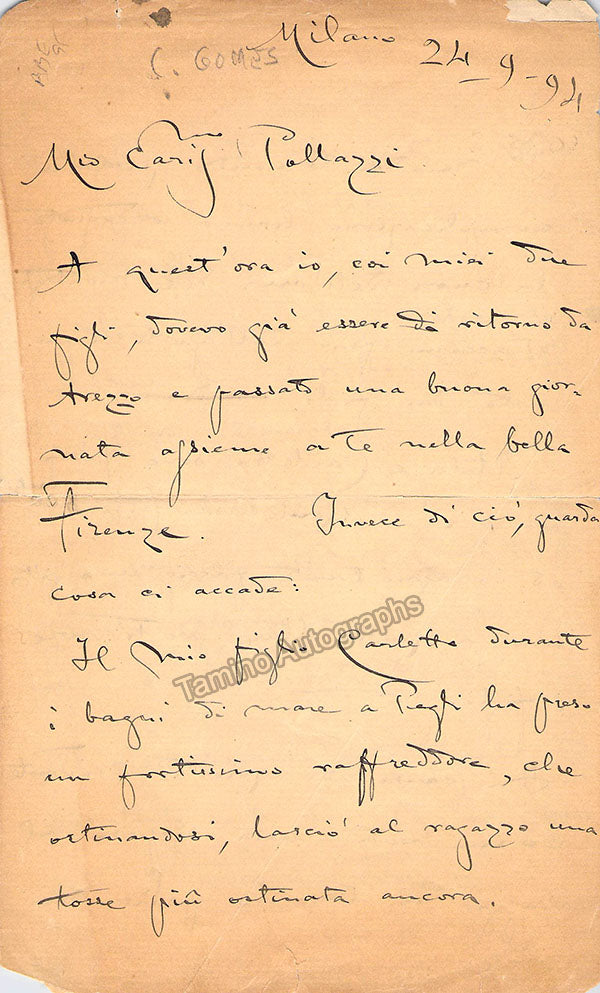 Milano 24-9-94
C. GOMES
Mio Cariss.mo Pollazzi
A quest'ora io, coi miei due
figli, dovevo già essere di ritorno da
Arezzo e passato una buona gior-
nata assieme a Te nella bella
Firenze. Invece di ciò, guarda
cosa ci accade:
Il mio figlio Carletto durante
i bagni di mare a Pegli ha preso
un fortissimo raffreddore, che
ostinandosi, lasciò al ragazzo una
tosse più ostinata ancora.
Tamino Autographs